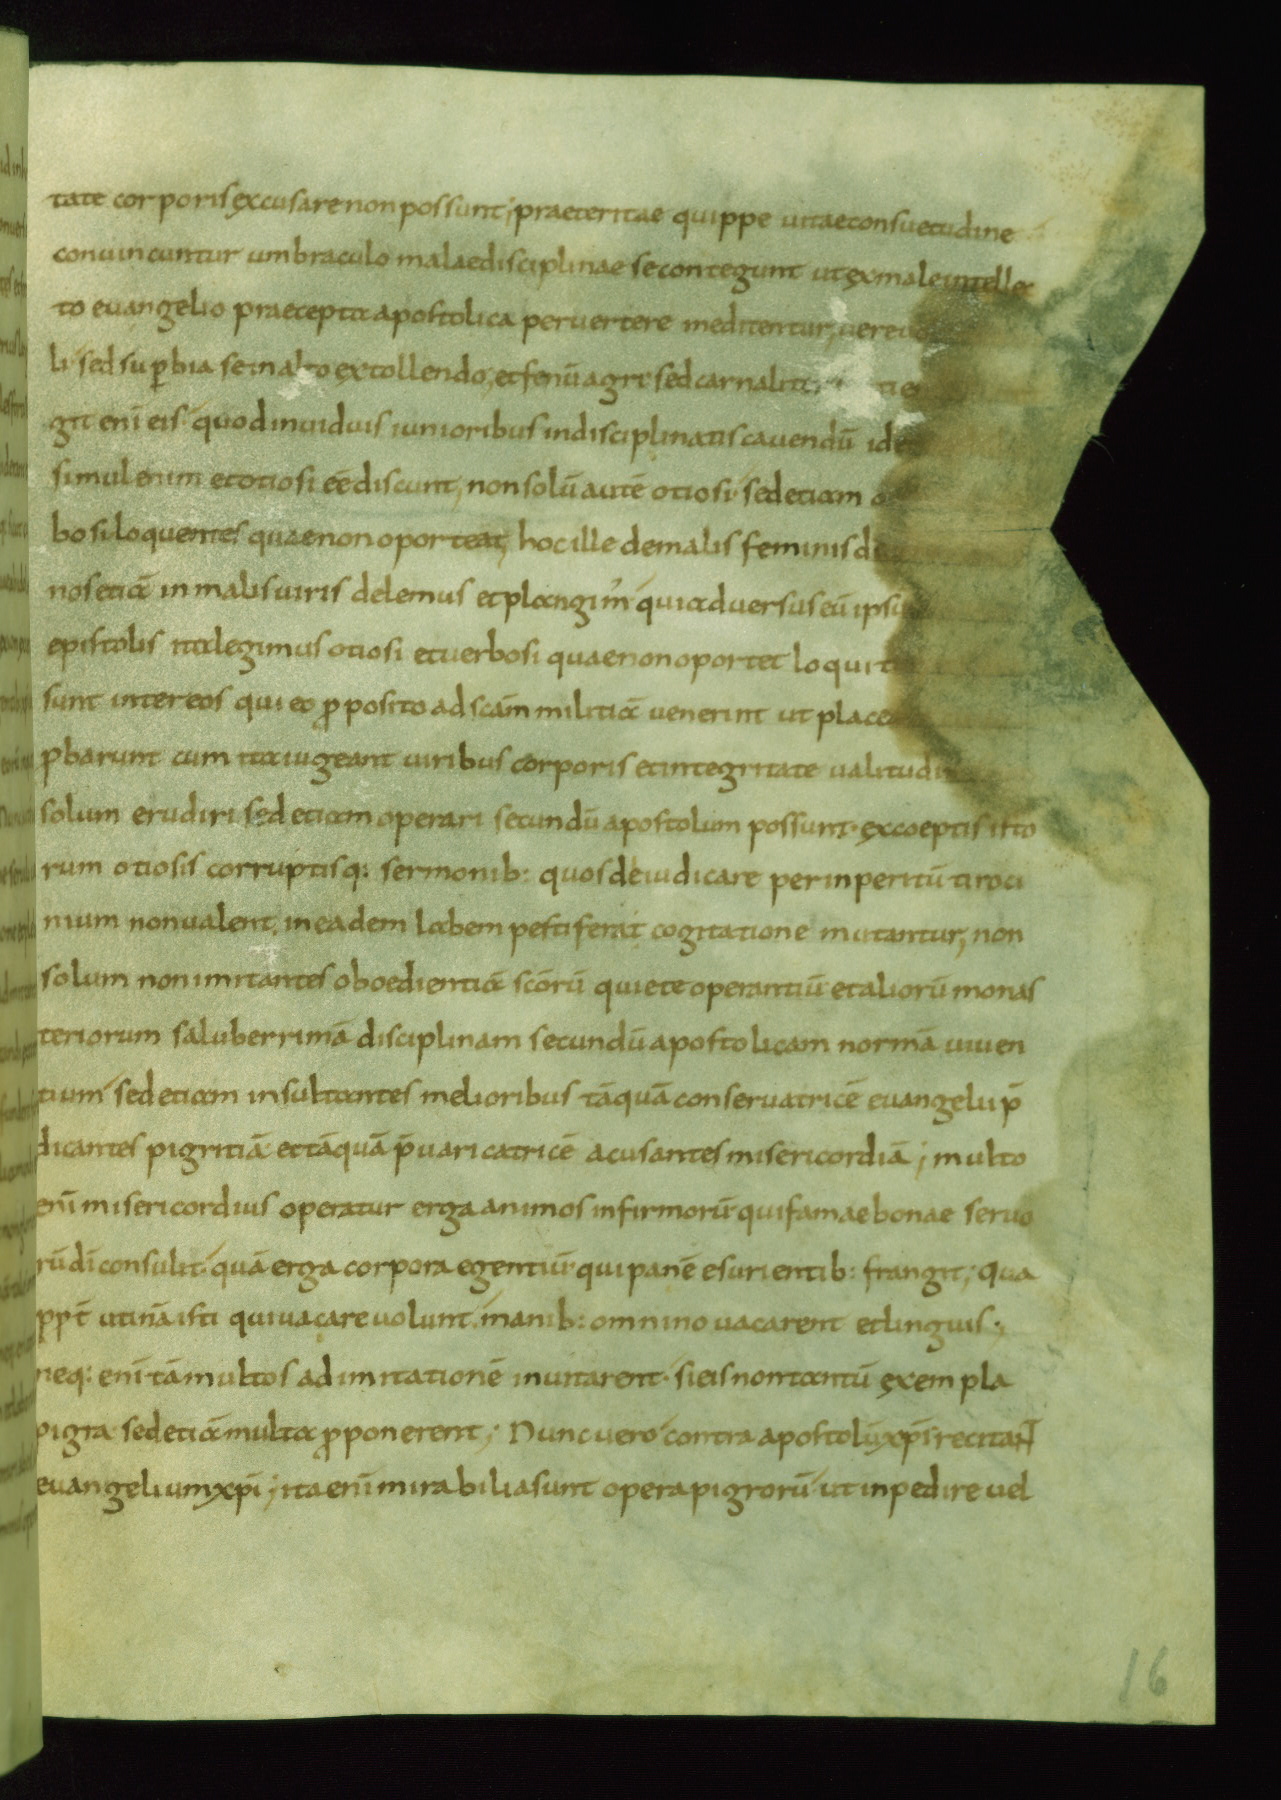 tate corporis excusare non possunt; praeteritae quippe uitae consuetudine
conuincuntur umbraculo malae disciplinae se contegunt ut ex male intellec
to euangelio praecepta apostolica peruertere meditentur; uere
li· sed supbia se in alto extollendo, et fenū agri· sed carnalit
git enī eis quod in uiduis iunioribus indisciplinatis cauendū
simul enim et otiosi eē discunt, non solū autē otiosi· sed etiam
bosi loquentes quae non oporteat; hoc ille de malis feminis
nos etiā in malis uiris delemus et plangim' qui aduersus eū
epistolis ita legimus otiosi et uerbosi quae non oportet loqui
sunt inter eos qui eo pposito ad scām militiā uenerint ut
pbarunt cum ita iugeant uiribus corporis et integritate
solum erudiri sed etiam operari secundū apostolum possunt· excoeptis isto
rum otiosis corruptisq: sermonib: quos deiudicare per inperitū tiroci
nium non ualent, in eadem labem pestiferat cogitatione mutantur, non
solum non imitantes oboedientiā scōrū quiete operantiū et aliorū monas
teriorum saluberrimā disciplinam secundū apostolicam normā uiuen
tium sed etiam insultantes melioribus tāquā conseruatricē euangelii p̄
dicantes pigritiā et tāquā p̄uaricatricē acusantes misericordiā; multo
enī misericordius operatur erga animos infirmorū qui famae bonae seruo
rū dī consulit· quā erga corpora egentiū qui panē esurientib: frangit; qua
ppt̄ utinā isti qui uacare uolunt manib: omnino uacarent et linguis;
neq: enī tā multos ad imitationē inuitarent· si eis non tantū exempla
pigra sed etiā multa pponerent; Nunc uero contra apostolū xp̄i recitant
euangelium xp̄i; ita enī mirabilia sunt opera pigrorū ut inpedire uel
16